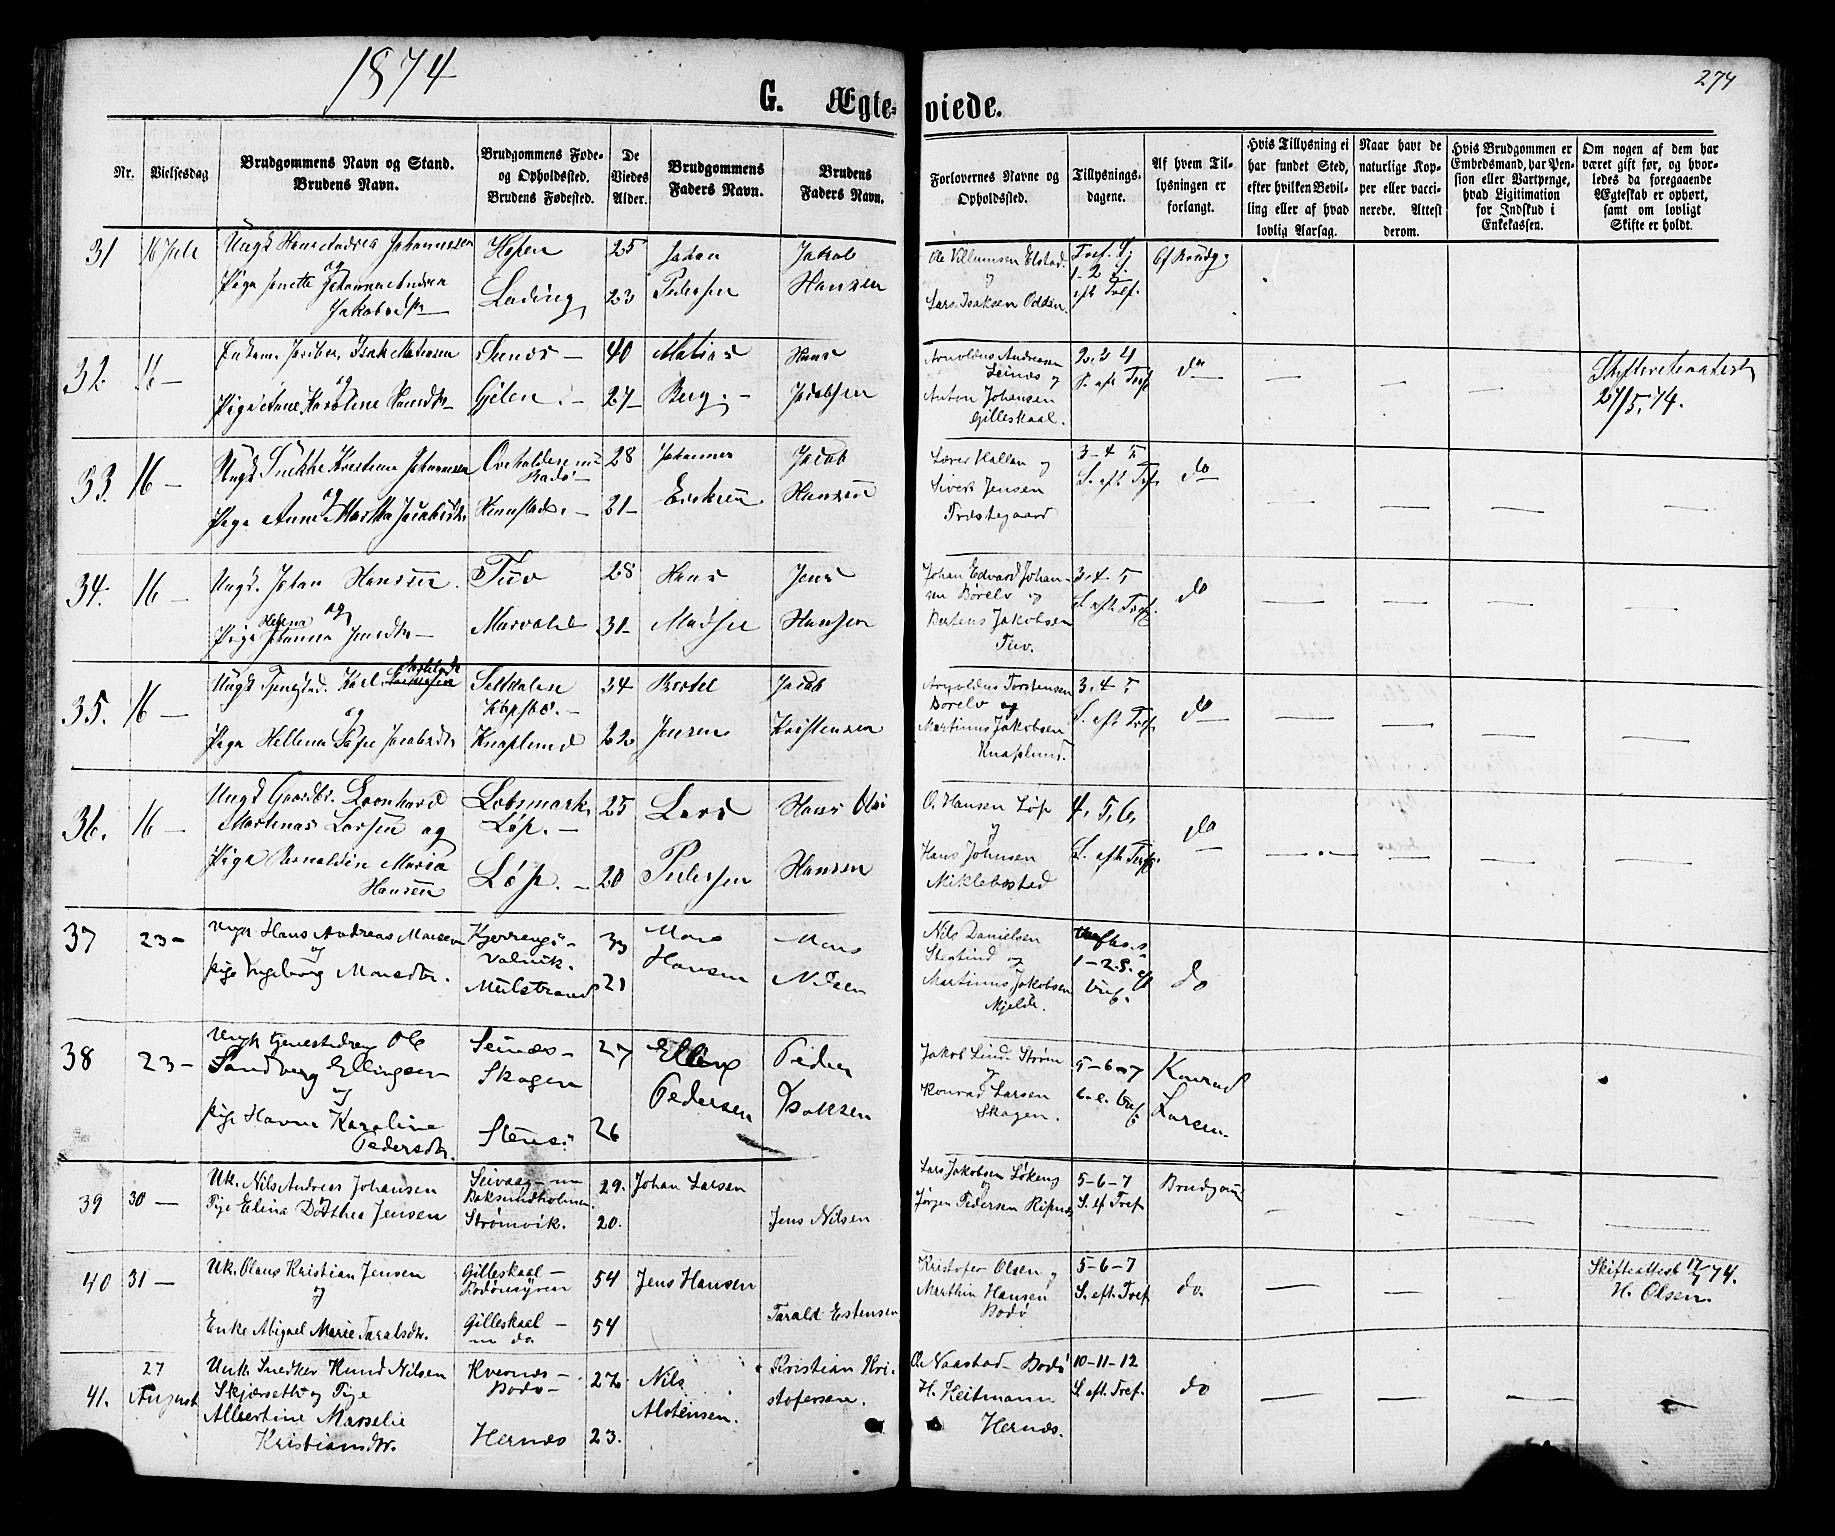 1874
274
G. Ægteviede.
Nr.
Vielsesdag
Brudgommens Navn og Stand.
Brudens Navn.
Brudgommens Føde-
og Opholdssted.
Brudens Fødested.
De
Viedes
Alder.
Brudgommens
Faders Navn.
Brudens
Faders Navn.
Forlovernes Navne og
Opholdssted.
Tillysnings-
dagene.
Af hvem Til-
lysningen er
forlangt.
Hvis Tillysning ei
har fundet Sted,
efter hvilken Bevil-
ling eller af hvad
lovlig Aarsag.
Naar havt de
naturlige Kop-
per eller vacci-
nerede. Attest
derom.
Hvis Brudgommen er
Embedsmand, har Pen-
sion eller Vartpenge,
hvad Ligitimation
for Indskud i
Enkekassen.
Om nogen af dem har
været gift før, og hvor-
ledes da foregaaende
Ægteskab er ophørt,
samt om lovligt
Skifte er holdt.
31 16 Juli Ungk Hans Andreas Johannesen
og
Pige Janette Johanna Andrea
Jakobsdtr
Hopen
Løding
25
23
Johan
Pedersen
Jakob
Hansen
Ole Villumsen Elstad
og
Lars Isaksen Odden
Tref.
1. 2 S.
eft Tref.
Af Brudg.
32. 16 –
Isak Matiasen
og
Pige Anne Karoline Hansdtr
Seines –
40
27
Matias
Berg. –
Hans
Jacobsen
Arnoldus Andreasen
Seines og
Anton Johansen
Gilleskaal.
2. 3 4
S. eft Tref
do
Skifteretsattest
21/5, 74.
33. 16 – Ungk. Snekker Kristian Johannesen
og
Pige Anne Martha Jacobsdtr
Overhalden nu
Bodø –
28
21
Johannes
Eriksen
Jacob
Hansen
Hallan og
Sivert Jensen
Præstegaard
3 – 4 5
S. eft Tref.
do
34. 16 – Ungk. Johan Hansen
og
Helena
Pige Johanna Jensdtr –
Tuv
28
31
Hans
Madsen
Jens
Hansen
Johan Edvard Johan-
sen Børelv og
Berteus Jakobsen
Tuv.
3. 4. 5
S. eft. Tref.
do
35. 16 – Ungk Tjenestad. Karl
og
Pige Hellena Sofie Jacobsdtr
Saltdalen
Knaplund
34
22
Bertel
Jensen
Jacob
Kristensen
Arnoldus Torstensen
Børelv og
Martinus Jakobsen
Knaplund.
3. 4 5
S. eft. Tref.
do
36. 16 – Ungk Gaardbr. Leonhard
Martinus Larsen og
Pige Bernaldin Maria
Hansen
Løbsmark
Løp. –
Løp. –
25
20
Lars
Pedersen
Hans Olai
Hansen
O. Hansen Løp
og
Hans Johnsen
Miklebostad
4. 5. 6.
S. eft Tref.
do
37 23 – Ungk Hans Andreas Monsen
og
Pige Ingeborg Monsdtr.
Kjerringø –
Valvik.
Mulstrand
33
21
Mons
Hansen
Mons
Nilsen
Nils Danielsen
Stentind og
Martinus Jakobsen
Mjelde.
1 – 2. S. eft
do
38 23 – Ungk tjenestedreng Ole
Sandberg Ellingsen
og
Pige Hanna Karoline
Pedersdtr.
Seines –
Skagen
27
26
Elling
Pedersen
Peder
Isaksen
Jakob Lind. Strøm
og
Konrad Larsen
Skagen.
5 – 6 – 7
Konrad
Larsen
39 30 – Uk. Nils Andreas Johansen
og
Pige Elina Dorthea Jensen
Seivaag – nu
Baksundholmen
Strømvik.
29.
20.
Johan Larsen
Jens Nilsen
Lars Jakobsen Løkeng
og
Jørgen Pedersen Ripnes
5 – 6 – 7
S. ef Tref.
Brudgom
40 31 – Uk. Olaus Kristian Jensen
og
Enke Abigael Marie Taraldsdtr.
Gilleskaal –
Bodømyren
Gilleskaal –
nu do
54
54
Jens Hansen
Tarald Estensen
Kristofer Olsen og
Marthin Hansen
Bodø
5 – 6 – 7
S. eft. Tref
do.
Skifteattest 17/7 74.
H. Olsen.
41. 27
August
Unk Snedker Knud Nilsen
Skjørseth og Pige
Albertine Marselie
Kristiansdtr.
Kvernes –
Bodø –
Hernes
27
23.
Nils
Alstensen.
Kristian Kri-
stofersen.
Ole Naastad Bodø
H. Heitmann
Hernes.
10 – 11 – 12
S. eft. Tref.
do